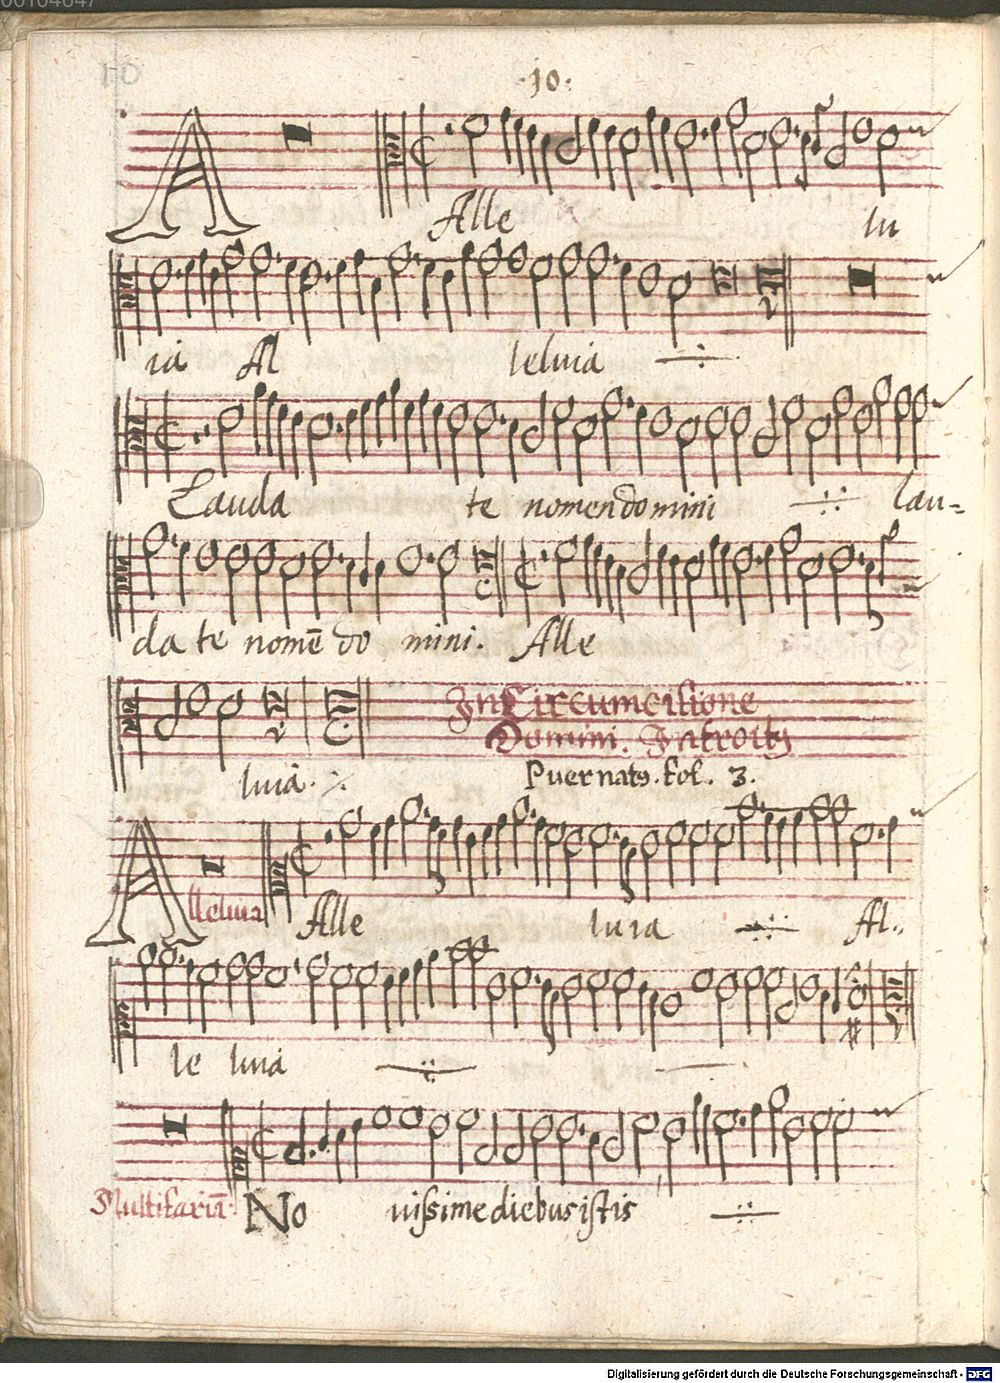 00104647
10
·10·
A
Alle lu
ia Al leluia
Lauda te nomen domini lau-
da te nomē do mini. Alle
In Circumcisione
Domini. Introitꝰ
luia.
Puer natꝰ. Fol. 3.
A
lleluia Alle luia Al-
le luia
Multifariā No uißime diebus istis
Digitalisierung gefördert durch die Deutsche Forschungsgemeinschaft - DFG